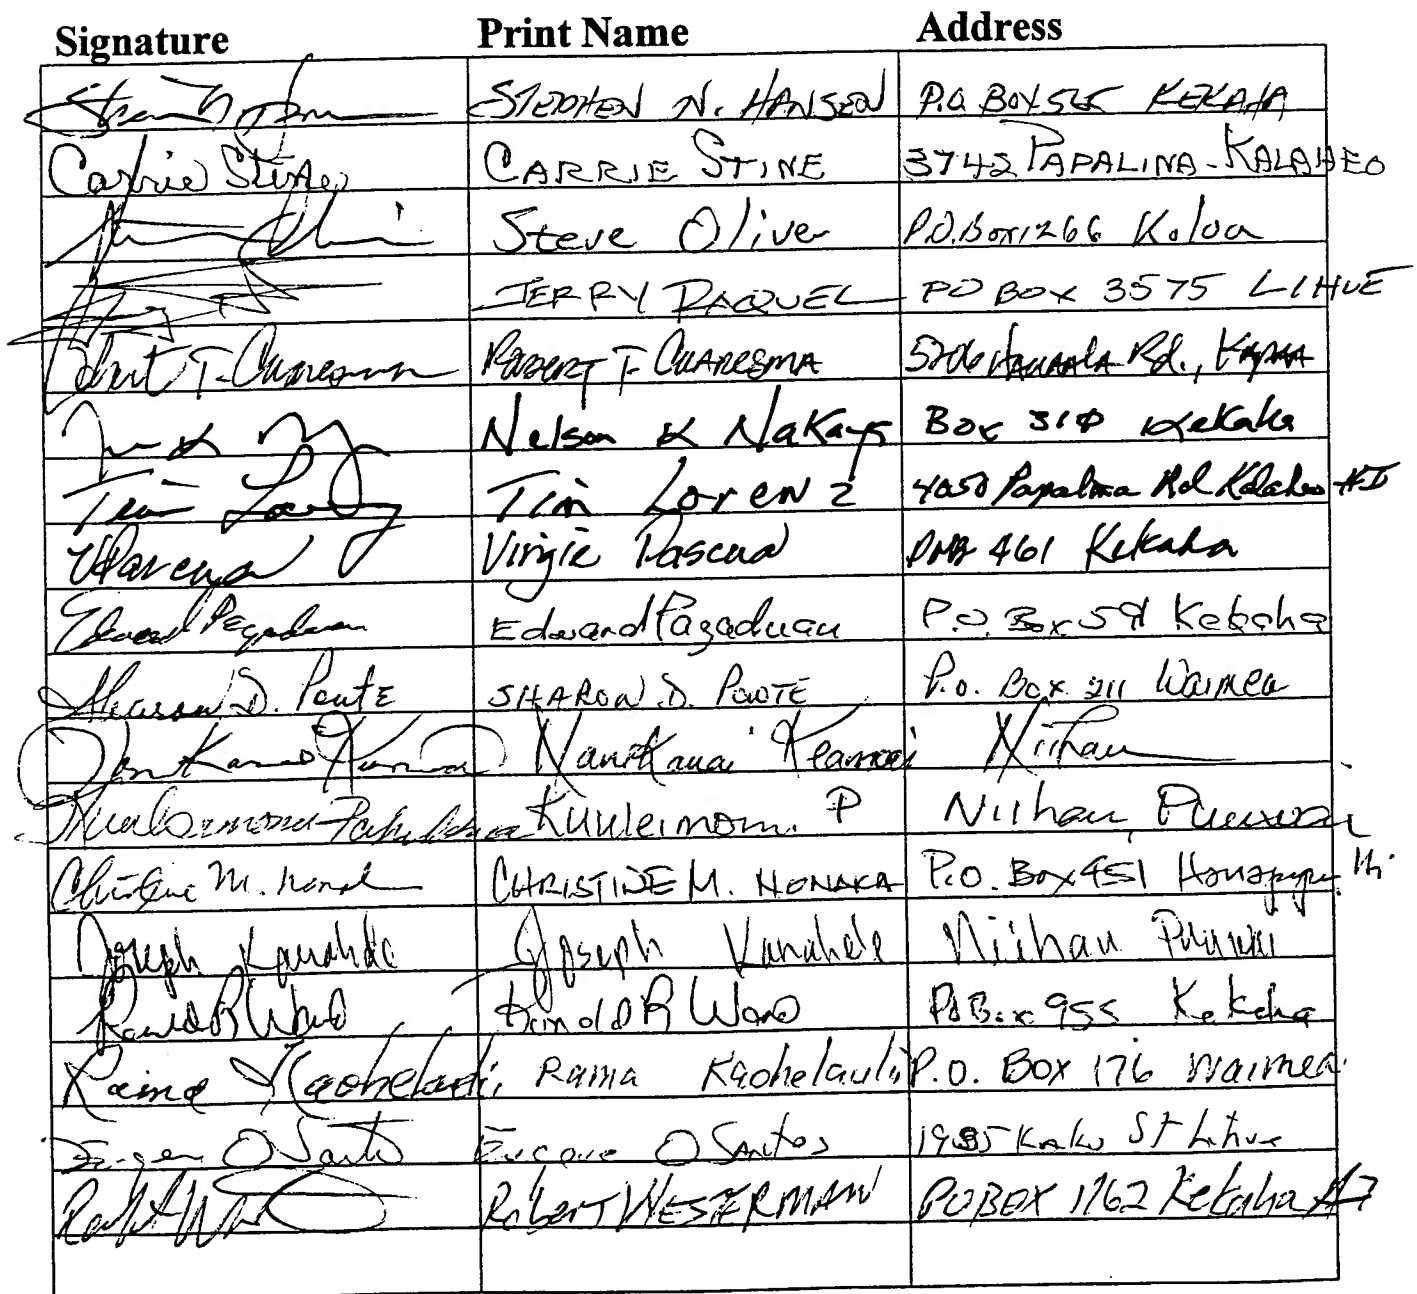 Signature Print Name Address
STEPHEN N. HANSEN P.O. BOX 565 KEKAHA
Carrie Stine CARRIE STINE 3742 PAPALINA-KALAHEO
Steve Oliver P.O. Box 1266 Koloa
JERRY RAQUEL PO BOX 3575 LIHUE
Robert T. Cuaresma ROBERT T. CUARESMA Rd., KAPAA
Nelson K Box 310 Kekaha
Tim Lorenz Tim Lorenz 4050 Papalina Rd Kalaheo HI
Virgie Pascua 461 Kekaha
Edward Pagaduan Edward Pagaduan P.O. Box 591 Kekaha
Sharon D. Poute SHARON D. POUTE P.O. Box 211 Waimea
Niihau
Kuuleimomi P Niihau, Puuwai
Christine M. CHRISTINE M. NONAKA P.O. Box 451 Hanapepe Hi
Joseph Kanahele Joseph Kanahele Niihau Puuwai
Ronald R Ward Ronald R Ward PO Box 955 Kekaha
Raina Kaohelaulii Raina Kaohelaulii P.O. Box 176 Waimea
Eugene O Santos Eugene O Santos St Lihue
Robert WESTERMAN PO BOX 1762 Kekaha HI